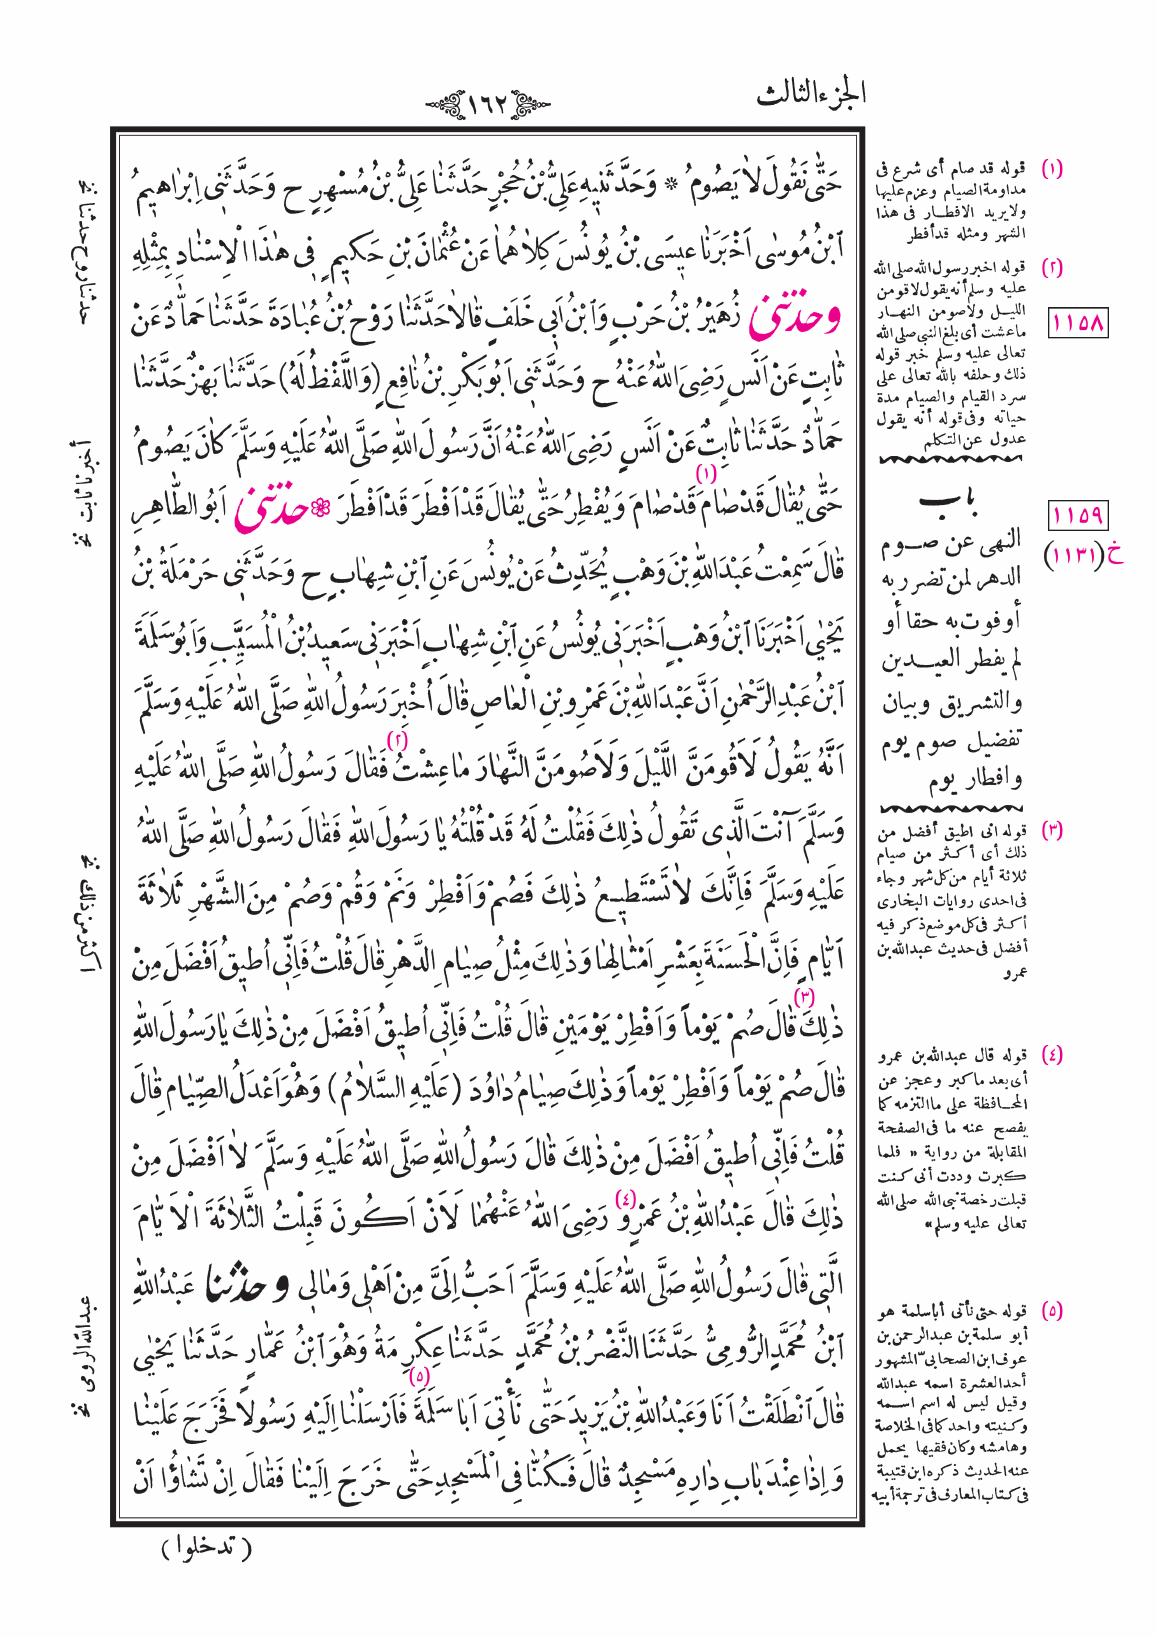 الجزء الثالث
١٦٢
حَتّٰى نَقُولَ لَا يَصُومُ * وَحَدَّثَنِيهِ عَلِىُّ بْنُ حُجْرٍ حَدَّثَنَا عَلِىُّ بْنُ مُسْهِرٍ ح وَحَدَّثَنِى اِبْرَاهِيمُ
ابْنُ مُوسٰى اَخْبَرَنَا عِيسَى بْنُ يُونُسَ كِلَاهُمَا عَنْ عُثْمَانَ بْنِ حَكِيمٍ فِى هٰذَا الْاِسْنَادِ بِمِثْلِهِ
وحدثنى زُهَيْرُ بْنُ حَرْبٍ وَابْنُ اَبِى خَلَفٍ قَالَا حَدَّثَنَا رَوْحُ بْنُ عُبَادَةَ حَدَّثَنَا حَمَّادٌ عَنْ
ثَابِتٍ عَنْ اَنَسٍ رَضِىَ اللّٰهُ عَنْهُ ح وَحَدَّثَنِى اَبُو بَكْرِ بْنُ نَافِعٍ (وَاللَّفْظُ لَهُ) حَدَّثَنَا بَهْزٌ حَدَّثَنَا
حَمَّادٌ حَدَّثَنَا ثَابِتٌ عَنْ اَنَسٍ رَضِىَ اللّٰهُ عَنْهُ اَنَّ رَسُولَ اللّٰهِ صَلَّى اللّٰهُ عَلَيْهِ وَسَلَّمَ كَانَ يَصُومُ
حَتّٰى يُقَالَ قَدْ صَامَ (١) قَدْ صَامَ وَيُفْطِرُ حَتّٰى يُقَالَ قَدْ اَفْطَرَ قَدْ اَفْطَرَ ❁ حدثنى اَبُو الطَّاهِرِ
قَالَ سَمِعْتُ عَبْدَ اللّٰهِ بْنَ وَهْبٍ يُحَدِّثُ عَنْ يُونُسَ عَنِ ابْنِ شِهَابٍ ح وَحَدَّثَنِى حَرْمَلَةُ بْنُ
يَحْيٰى اَخْبَرَنَا ابْنُ وَهْبٍ اَخْبَرَنِى يُونُسُ عَنِ ابْنِ شِهَابٍ اَخْبَرَنِى سَعِيدُ بْنُ الْمُسَيَّبِ وَاَبُو سَلَمَةَ
ابْنُ عَبْدِ الرَّحْمٰنِ اَنَّ عَبْدَ اللّٰهِ بْنَ عَمْرِو بْنِ الْعَاصِ قَالَ اُخْبِرَ رَسُولُ اللّٰهِ صَلَّى اللّٰهُ عَلَيْهِ وَسَلَّمَ
اَنَّهُ يَقُولُ لَاَقُومَنَّ اللَّيْلَ وَلَاَصُومَنَّ النَّهَارَ مَا عِشْتُ (٢) فَقَالَ رَسُولُ اللّٰهِ صَلَّى اللّٰهُ عَلَيْهِ
وَسَلَّمَ آنْتَ الَّذِى تَقُولُ ذٰلِكَ فَقُلْتُ لَهُ قَدْ قُلْتُهُ يَا رَسُولَ اللّٰهِ فَقَالَ رَسُولُ اللّٰهِ صَلَّى اللّٰهُ
عَلَيْهِ وَسَلَّمَ فَاِنَّكَ لَا تَسْتَطِيعُ ذٰلِكَ فَصُمْ وَاَفْطِرْ وَنَمْ وَقُمْ وَصُمْ مِنَ الشَّهْرِ ثَلَاثَةَ
اَيَّامٍ فَاِنَّ الْحَسَنَةَ بِعَشْرِ اَمْثَالِهَا وَذٰلِكَ مِثْلُ صِيَامِ الدَّهْرِ قَالَ قُلْتُ فَاِنِّى اُطِيقُ اَفْضَلَ مِنْ
ذٰلِكَ (٣) قَالَ صُمْ يَوْماً وَاَفْطِرْ يَوْمَيْنِ قَالَ قُلْتُ فَاِنِّى اُطِيقُ اَفْضَلَ مِنْ ذٰلِكَ يَا رَسُولَ اللّٰهِ
قَالَ صُمْ يَوْماً وَاَفْطِرْ يَوْماً وَذٰلِكَ صِيَامُ دَاوُدَ (عَلَيْهِ السَّلَامُ) وَهُوَ اَعْدَلُ الصِّيَامِ قَالَ
قُلْتُ فَاِنِّى اُطِيقُ اَفْضَلَ مِنْ ذٰلِكَ قَالَ رَسُولُ اللّٰهِ صَلَّى اللّٰهُ عَلَيْهِ وَسَلَّمَ لَا اَفْضَلَ مِنْ
ذٰلِكَ قَالَ عَبْدُ اللّٰهِ بْنُ عَمْرٍو (٤) رَضِىَ اللّٰهُ عَنْهُمَا لَاَنْ اَكُونَ قَبِلْتُ الثَّلَاثَةَ الْاَيَّامَ
الَّتِى قَالَ رَسُولُ اللّٰهِ صَلَّى اللّٰهُ عَلَيْهِ وَسَلَّمَ اَحَبُّ اِلَىَّ مِنْ اَهْلِى وَمَالِى وحدثنا عَبْدُ اللّٰهِ
ابْنُ مُحَمَّدٍ الرُّومِىُّ حَدَّثَنَا النَّضْرُ بْنُ مُحَمَّدٍ حَدَّثَنَا عِكْرِمَةُ وَهُوَ ابْنُ عَمَّارٍ حَدَّثَنَا يَحْيٰى
قَالَ انْطَلَقْتُ اَنَا وَعَبْدُ اللّٰهِ بْنُ يَزِيدَ حَتّٰى نَأْتِىَ اَبَا سَلَمَةَ (٥) فَاَرْسَلْنَا اِلَيْهِ رَسُولاً فَخَرَجَ عَلَيْنَا
وَاِذَا عِنْدَ بَابِ دَارِهِ مَسْجِدٌ قَالَ فَكُنَّا فِى الْمَسْجِدِ حَتّٰى خَرَجَ اِلَيْنَا فَقَالَ اِنْ تَشَاؤُا اَنْ
(تدخلوا)
(١) قوله قد صام أى شرع فى
مداومة الصيام وعزم عليها
ولا يريد الافطار فى هذا
الشهر ومثله قد أفطر
(٢) قوله اخبر رسول الله صلى الله
عليه وسلم أنه يقول لاقومن
الليل ولاصومن النهار
ما عشت أى بلغ النبى صلى الله
تعالى عليه وسلم خبر قوله
ذلك وحلفه بالله تعالى على
سرد القيام والصيام مدة
حياته وفى قوله أنه يقول
عدول عن التكلم
١١٥٨
باب
النهى عن صوم
الدهر لمن تضرر به
أو فوت به حقا أو
لم يفطر العيدين
والتشريق وبيان
تفضيل صوم يوم
وافطار يوم
١١٥٩
خ (١١٣١)
(٣) قوله انى اطيق أفضل من
ذلك أى أكثر من صيام
ثلاثة أيام من كل شهر وجاء
فى احدى روايات البخارى
أكثر فى كل موضع ذكر فيه
أفضل فى حديث عبدالله بن
عمرو
(٤) قوله قال عبدالله بن عمرو
أى بعد ما كبر وعجز عن
المحافظة على ما التزمه كما
يفصح عنه ما فى الصفحة
المقابلة من رواية « فلما
كبرت وددت أنى كنت
قبلت رخصة نبى الله صلى الله
تعالى عليه وسلم»
(٥) قوله حتى نأتى أباسلمة هو
أبو سلمة بن عبدالرحمن بن
عوف ابن الصحابىّ المشهور
أحد العشرة اسمه عبدالله
وقيل ليس له اسم اسمه
وكنيته واحد كما فى الخلاصة
وهامشه وكان فقيها يحمل
عنه الحديث ذكره ابن قتيبة
فى كتاب المعارف فى ترجمة أبيه
حدثنا روح حدثنا نخ
أخبرنا ثابت نخ
اكثر من ذلك نخ
عبدالله الرومى نخ